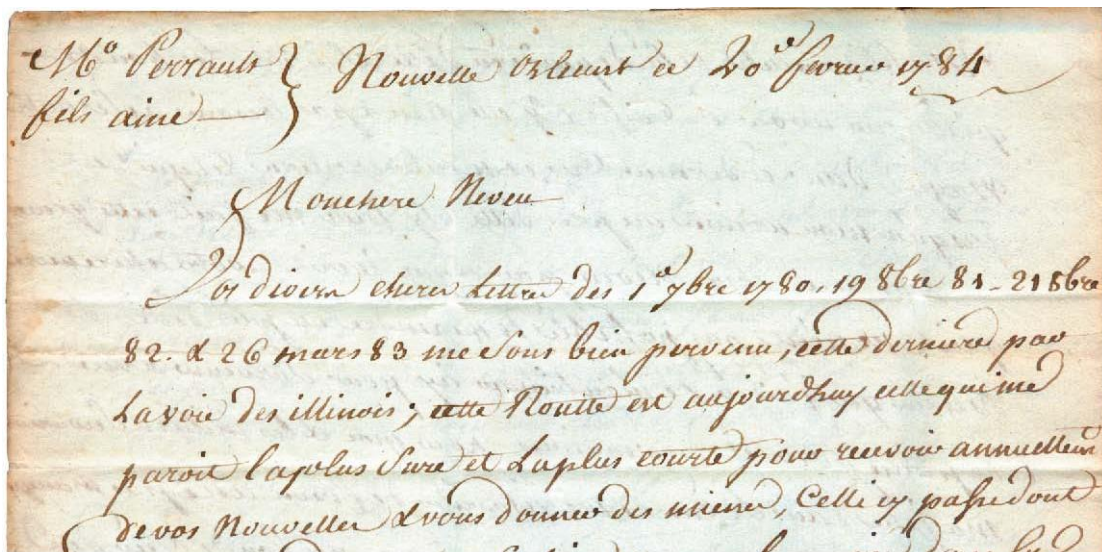 Mr. Perrault } Nouvelle Orleans ce 20e fevrier 1784
fils ainé
Moncher Neveu
Vos divers cheres Lettres des 1e 7bre 1780, 19 8bre 81 - 21 8bre
82. & 26 mars 83 me Sont bien parvenu, cette derniere par
La voie des illinois; cette Routte est aujourdhuy celle qui me
paroit la plus Sure et La plus courte pour recevoir annuellem
de vos Nouvelles & vous donner des miennes, Celle cy passe dont